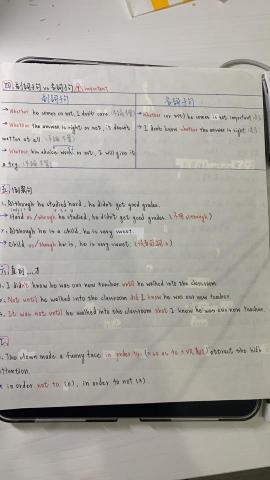 四 副詞子句 vs 名詞子句 important
副詞子句 名詞子句
→ Whether he comes or not, I don't care. (不論不管)
→ Whether (or not) he comes is not important.
→ Whether the answer is right or not, it doesn't
→ I don't know whether the answer is right.
matter at all. (不論不管)
→ Whether his advice works or not, I will give it
a try. (不論不管)
五 倒裝句
1. Although he studied hard, he didn't get good grades.
→ Hard as/though he studied, he didn't get good grades. (不用although)
Although he is a child, he is very sweet.
→ Child as/though he is, he is very sweet.
六 直到
1. I didn't know he was our new teacher until he walked into the classroom.
2. Not until he walked into the classroom did I know he was our new teacher.
3. It was not until he walked into the classroom that I knew he was our new teacher.
七
1. The clown made a funny face in order to (= so as to = to + VR) attract the kid's
attention.
in order not to (o), in order to not (x)